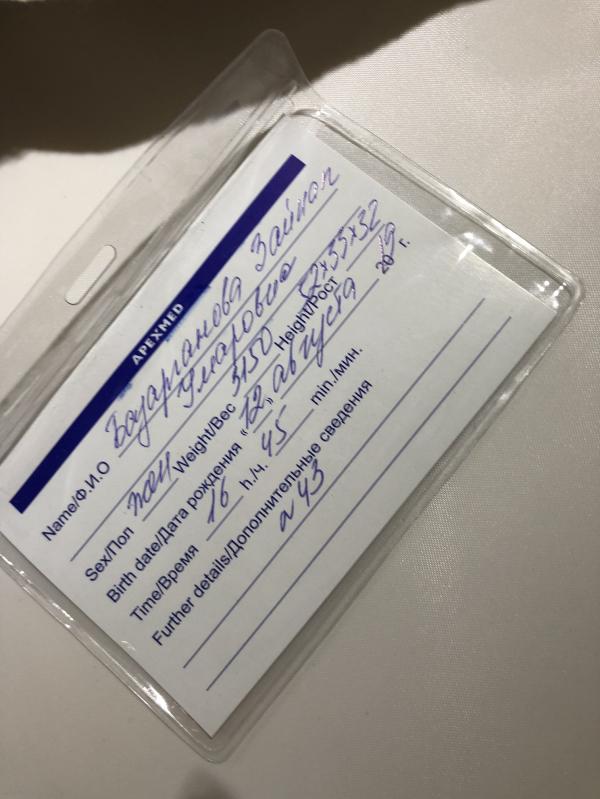 APEXMED
Name/Ф.И.О Базарганова Зайнап
Умаровна
Sex/Пол жен Weight/Вес 3150 Height/Рост 52х35х32
Birth date/Дата рождения «12» августа 2019 г.
Time/Время 16 h./ч. 45 min./мин.
Further details/Дополнительные сведения
а 43